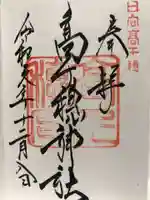 日向高千穂
奉拝
高千穂神社
令和
年十二月
日